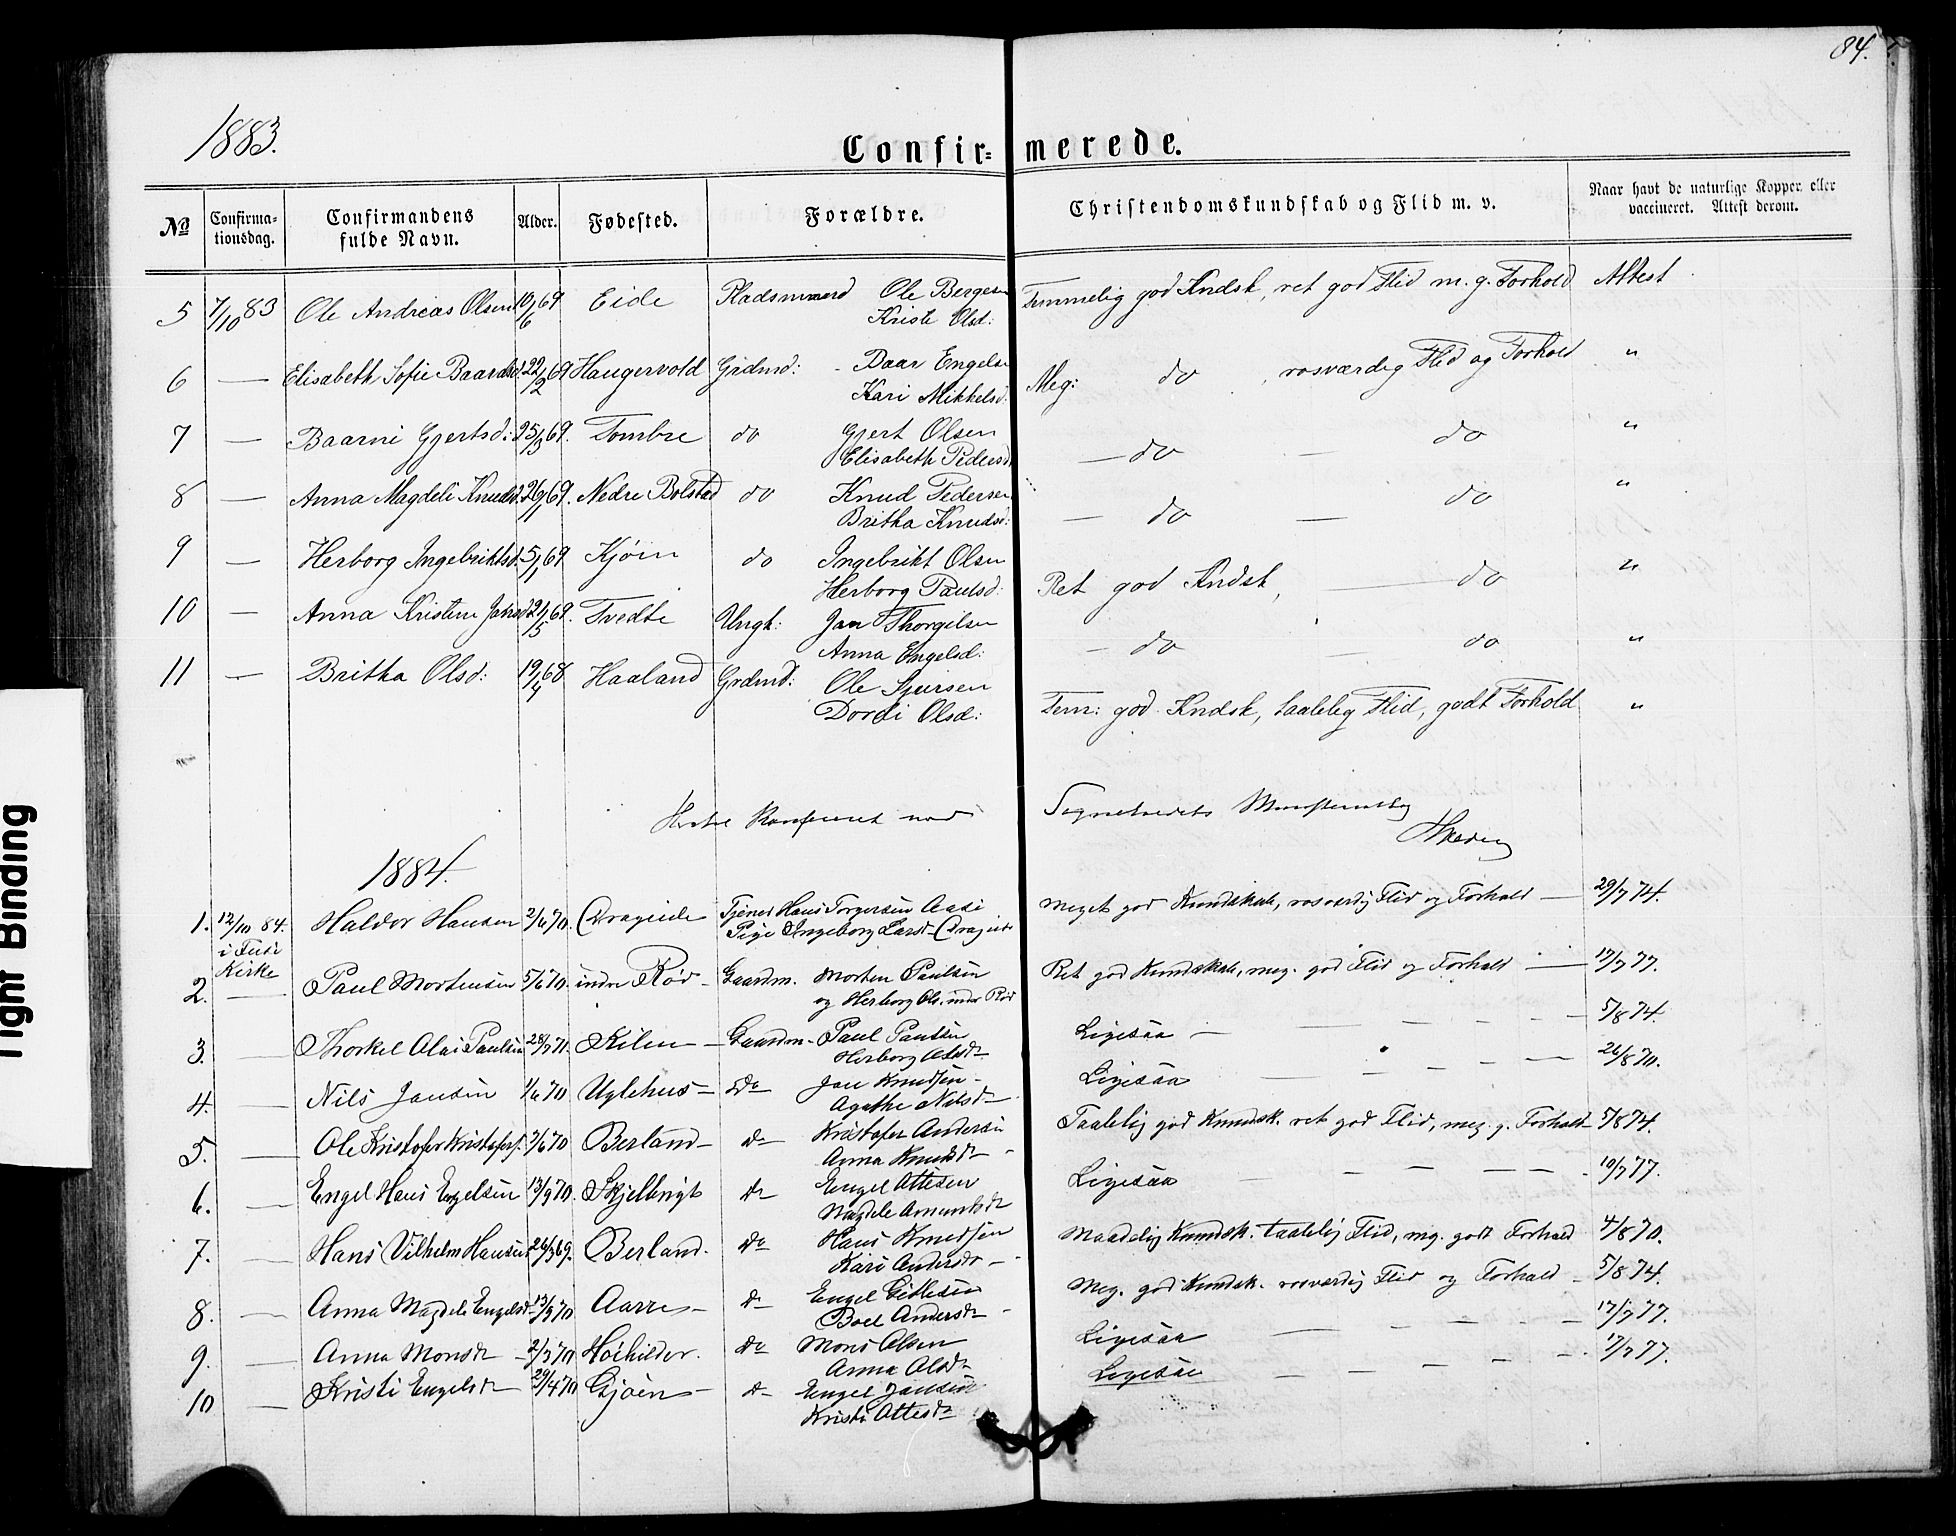 84.
1883.
Confir- merede.
No
Confirma-
tionsdag.
Confirmandens
fulde Navn.
Alder.
Fødested.
Forældre.
Christendomskundskab og Flid m. v.
Naar havt de naturlige Kopper eller
vaccineret. Attest derom.
5 7/10 83 Ole Andreas Olsen 10/6 69 Eide Pladsmænd Ole Bergesen Temmelig god Kndsk, ret god Flid m. g. Forhold Attest
Kristi Olsd:
6 — Elisabeth Sofie Baardsd. 22/2 69 Haugervold Grdmd: Baar Engelsen Meg: do, rosværdig Flid og Forhold "
Kari Mikkelsd:
7 — Baarni Gjertsd: 25/3 69. Tombre do Gjert Olsen — do — do "
Elisabeth Pedersd
8 — Anna Magdeli Knudsd. 26/1 69. Nedre Bolstad do Knud Pedersen — do — do "
Britha Knudsd:
9 — Herborg Ingebriktsd. 5/1 69 Kjøin do Ingebrikt Olsen Ret god Kndsk, — do "
Herborg Paulsd:
10 — Anna Kristine Jansd 21/5 69. Tvedte Ungk: Jan Thorgilsen - do — do "
Anna Engelsd:
11 — Britha Olsd: 19/4 68 Haaland Grdmd: Ole Sjursen Tem: god Kndsk, taalelig Flid, godt Forhold "
Dordi Olsd:
1884.
1. 12/10 84. Haldor Hansen 2/6 70. Drageide Tjener Hans Torgersen Aase meget god Kundskab, rosværdig Flid og Forhold — 29/7 74.
i Fuse
Kirke
Pige Ingeborg Larsd. Drageide
2. — Paul Mortensen 5/6 70. indre Rød - Gaardm. Morten Paulsen Ret god Kundskab, meg. god Flid og Forhold — 17/7 77.
og Herborg Ols. indre Rød
3. — Thorkel Olai Paulsen 28/7 71. Kilen — Gaardm - Paul Paulsen Ligesaa — — — — 5/8 74.
Herborg Olsdr
4. — Nils Jansen 1/6 70 Uglehus — Do Jan Knudsen - Ligesaa — — — — 26/8 70.
Agathe Nilsdr
5. — Ole Kristofer Kristofers. 2/6 70 Berland — do Kristofer Andersen Taalelig god Kundsk. ret god Flid, meg. g. Forhold 5/8 74.
Anna Knudsdr
6. — Engel Hans Engelsen 13/9 70. Skjelbrejt do Engel Attesen Ligesaa — — — — 10/7 77.
Magdele Amundsdr
7. — Hans Vilhelm Hansen 26/3 69. Berland. Do Hans Knudsen Maadelig Kundsk. taalelig Flid, mg. godt Forhold 4/8 70.
Kari Andersdr —
8. — Anna Magdele Engelsdr 13/9 70 Aarre — do Engel Gittesen Meg. god Kundsk. rosværdig Flid og Forhold — 5/8 74.
Boel Andersdr
9. — Anna Monsdr — 2/7 70 Höihilder. Do Mons Olsen Ligesaa — — — — 17/7 77.
Anna Olsdr
10 — Kristi Engelsdr 29/4 70 Gjøen — do Engel Jansen Ligesaa — — — — 17/7 77.
Kristi Attesdr
Tight Binding